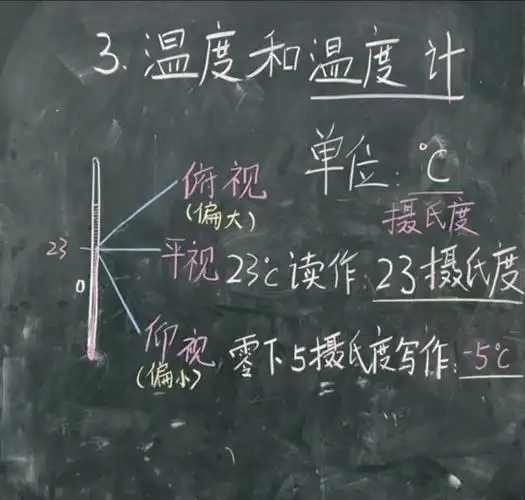 3. 温度和温度计
单位: ℃
摄氏度
俯视
(偏大)
23
平视
23℃读作: 23摄氏度
0
仰视
(偏小)
零下5摄氏度写作: -5℃